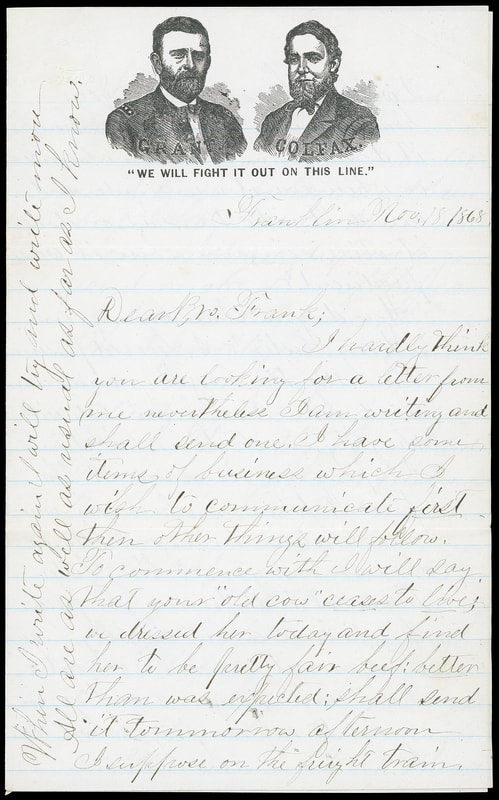 GRANT. COLFAX.
"WE WILL FIGHT IT OUT ON THIS LINE."
Franklin Nov. 18 1868
Dear Bro. Frank;
I hardly think
you are looking for a letter from
me nevertheless I am writing and
shall send one. I have some
items of business which I
wish to communicate first
then other things will follow.
To commence with I will say
that your "old cow" ceases to live;
we dressed her today and find
her to be pretty fair beef: better
than was expected; shall send
it tommorrow afternoon
I suppose on the freight train.
When I write again I will try and write more
All are as well as usual as far as I know.